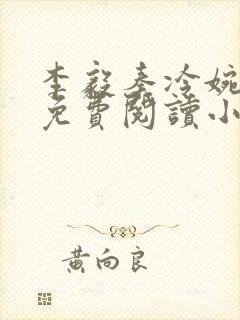 李毅秦冷婉
免費閱讀小
黃向良